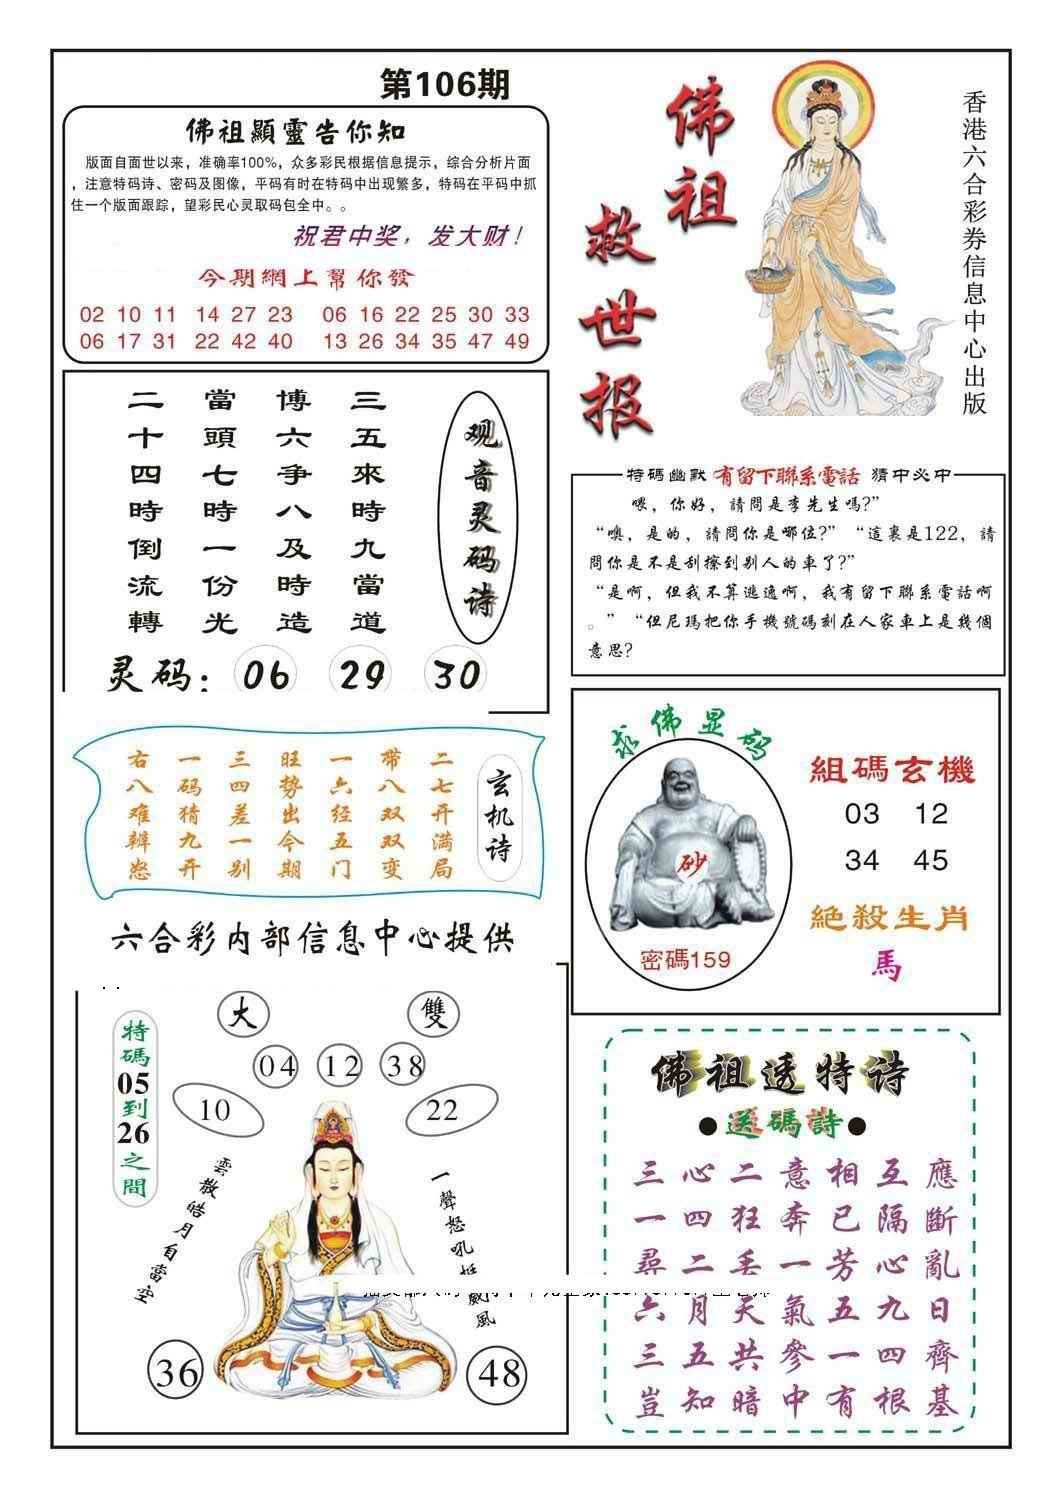 第106期
佛祖顯靈告你知
版面自面世以来，准确率100%，众多彩民根据信息提示，综合分析片面
，注意特码诗、密码及图像，平码有时在特码中出现繁多，特码在平码中抓
住一个版面跟踪，望彩民心灵取码包全中。。
祝君中奖，发大财！
今期網上幫你發
02 10 11 14 27 23 06 16 22 25 30 33
06 17 31 22 42 40 13 26 34 35 47 49
佛祖
救世报
香港六合彩券信息中心出版
观音灵码诗
三五來時九當道
博六爭八及時造
當頭七時一份光
二十四時倒流轉
灵码：06 29 30
特碼幽默 有留下聯系電話 猜中必中
喂，你好，請問是李先生嗎?”
“噢，是的，請問你是哪位?” “這裏是122，請
問你是不是刮擦到别人的車了?”
“是啊，但我不算逃逸啊，我有留下聯系電話啊
。” “但尼瑪把你手機號碼刻在人家車上是幾個
意思?
玄机诗
二七开满局
带八双双变
一六经五门
旺势出今期
三四差一别
一码猜九开
右八难辨愁
求佛显码
砂
密碼159
組碼玄機
03 12
34 45
絕殺生肖
馬
六合彩内部信息中心提供
大 雙
04 12 38
10 22
特碼05到26之間
雲散皓月自當空
一聲怒吼 威風
36 48
佛祖透特诗
●送碼詩●
三心二意相互應
一四狂奔已隔斷
尋二丢一芳心亂
六月天氣五九日
三五共參一四齊
豈知暗中有根基